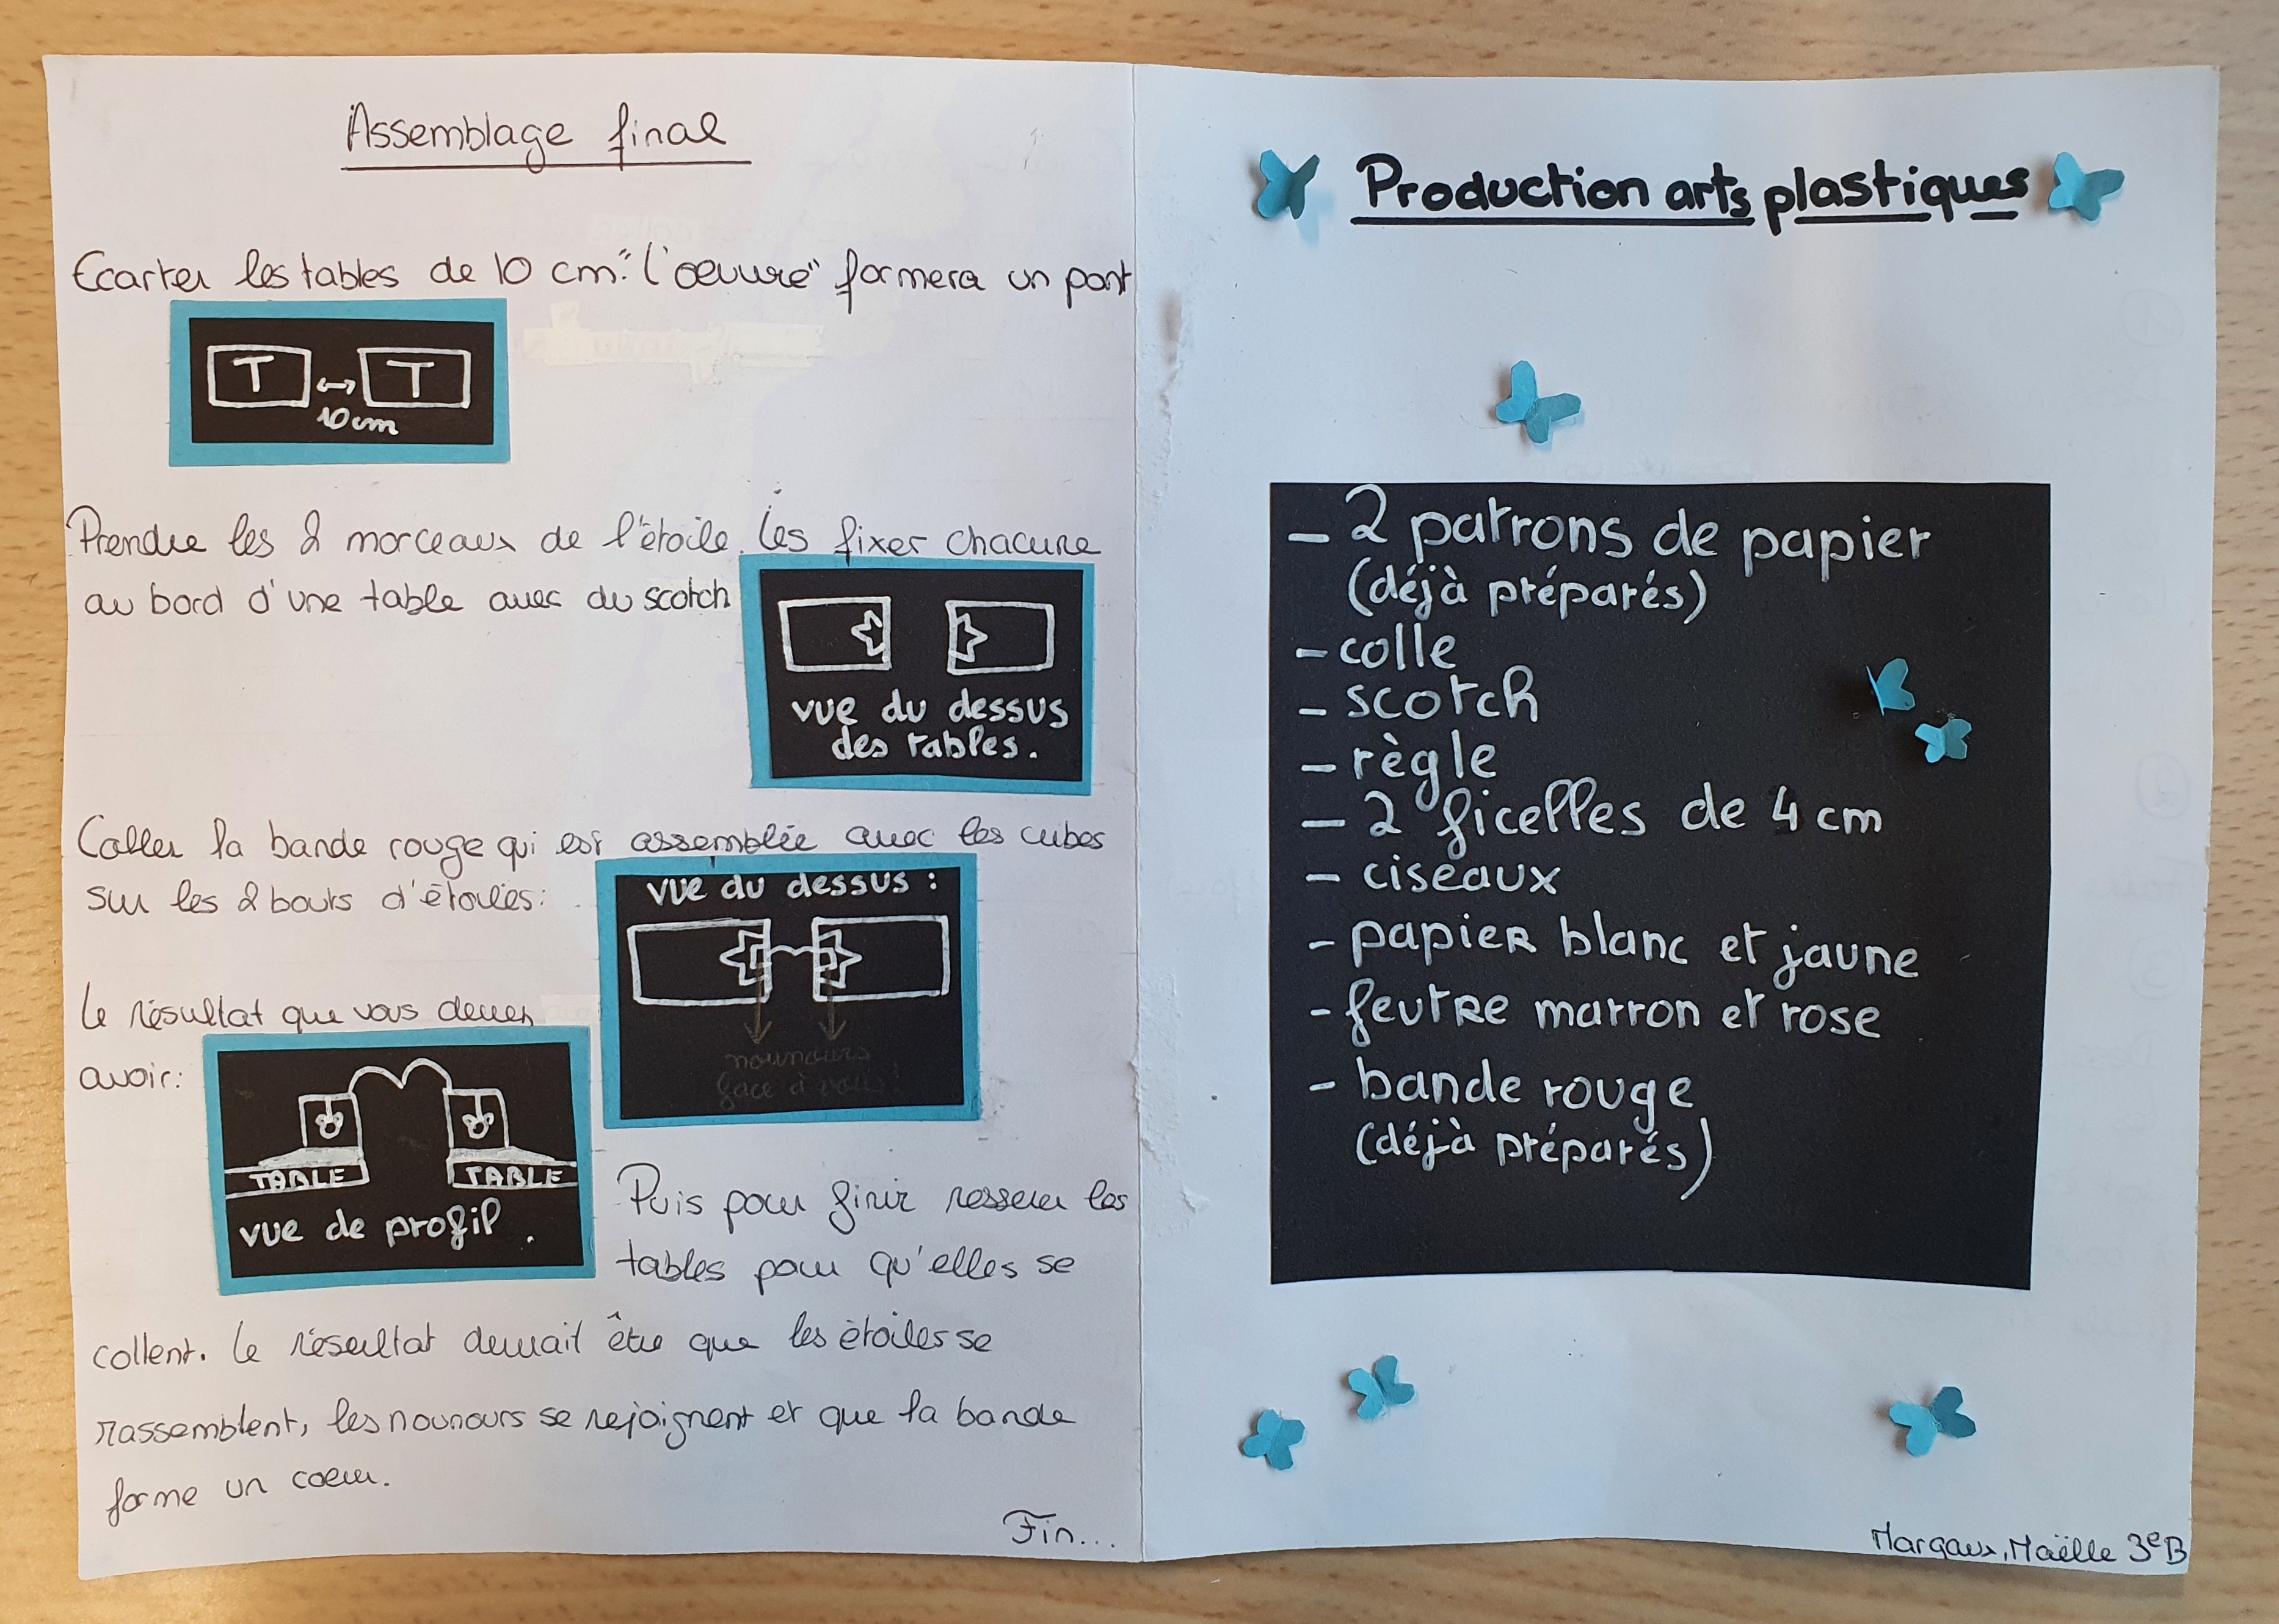 Assemblage final
Ecarter les tables de 10 cm: "l'oeuvre" formera un pont
T T
10 cm
Prendre les 2 morceaux de l'étoile. Les fixer chacune
au bord d'une table avec du scotch
vue du dessus
des tables.
Coller la bande rouge qui est assemblée avec les cubes
sur les 2 bouts d'étoiles:
vue du dessus :
nounours
face à vous !
Le résultat que vous devez
avoir:
TABLE TABLE
vue de profil.
Puis pour finir resserer les
tables pour qu'elles se
collent. Le résultat devrait être que les étoiles se
rassemblent, les nounours se rejoignent et que la bande
forme un coeur.
Fin...
Production arts plastiques
- 2 patrons de papier
(déjà préparés)
- colle
- scotch
- règle
- 2 ficelles de 4 cm
- ciseaux
- papier blanc et jaune
- feutre marron et rose
- bande rouge
(déjà préparés)
Margaux, Maëlle 3eB